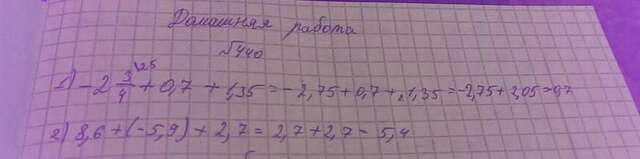 Домашняя работа
№440
1) -2 3/4 \25 + 0,7 + 1,35 = -2,75 + 0,7 + 1,35 = -2,75 + 2,05 = 0,7
2) 8,6 + (-5,9) + 2,7 = 2,7 + 2,7 - 5,4